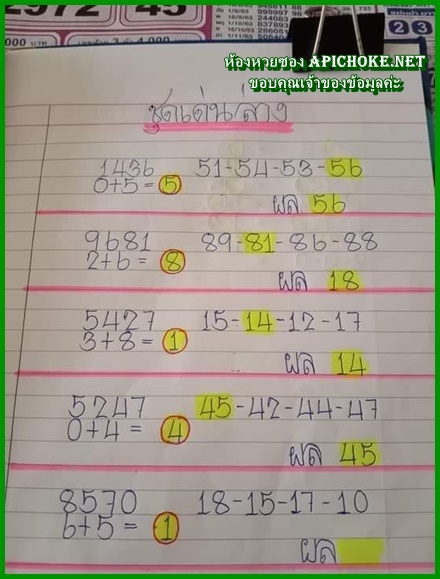 2972 45
ห้องหวยซอง APICHOKE.NET
ขอบคุณเจ้าของข้อมูลค่ะ
ชุดเด่นล่าง
1436 51-54-53-56
0+5 = 5
ผล 56
9681 89-81-86-88
2+6 = 8
ผล 18
5427 15-14-12-17
3+8 = 1
ผล 14
5247 45-42-44-47
0+4 = 4
ผล 45
8570 18-15-17-10
6+5 = 1
ผล